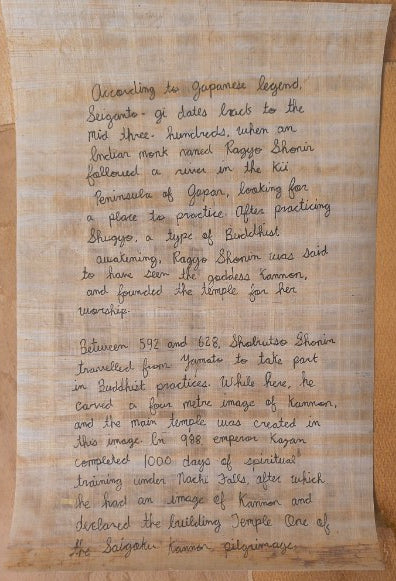 According to Japanese legend,
Seiganto-gi dates back to the
mid three-hundreds, when an
Indian monk named Ragyo Shonin
followed a river in the Kii
Peninsula of Japan, looking for
a place to practice. After practicing
Shugyo, a type of Buddhist
awakening, Ragyo Shonin was said
to have seen the goddess Kannon,
and founded the temple for her
worship.
Between 592 and 628, Shobutso Shonin
travelled from Yamato to take part
in Buddhist practices. While here, he
carved a four metre image of Kannon,
and the main temple was created in
this image. In 988, emperor Kazan
completed 1000 days of spiritual
training under Nachi Falls, after which
he had an image of Kannon and
declared the building Temple One of
the Saigoku Kannon pilgrimage.